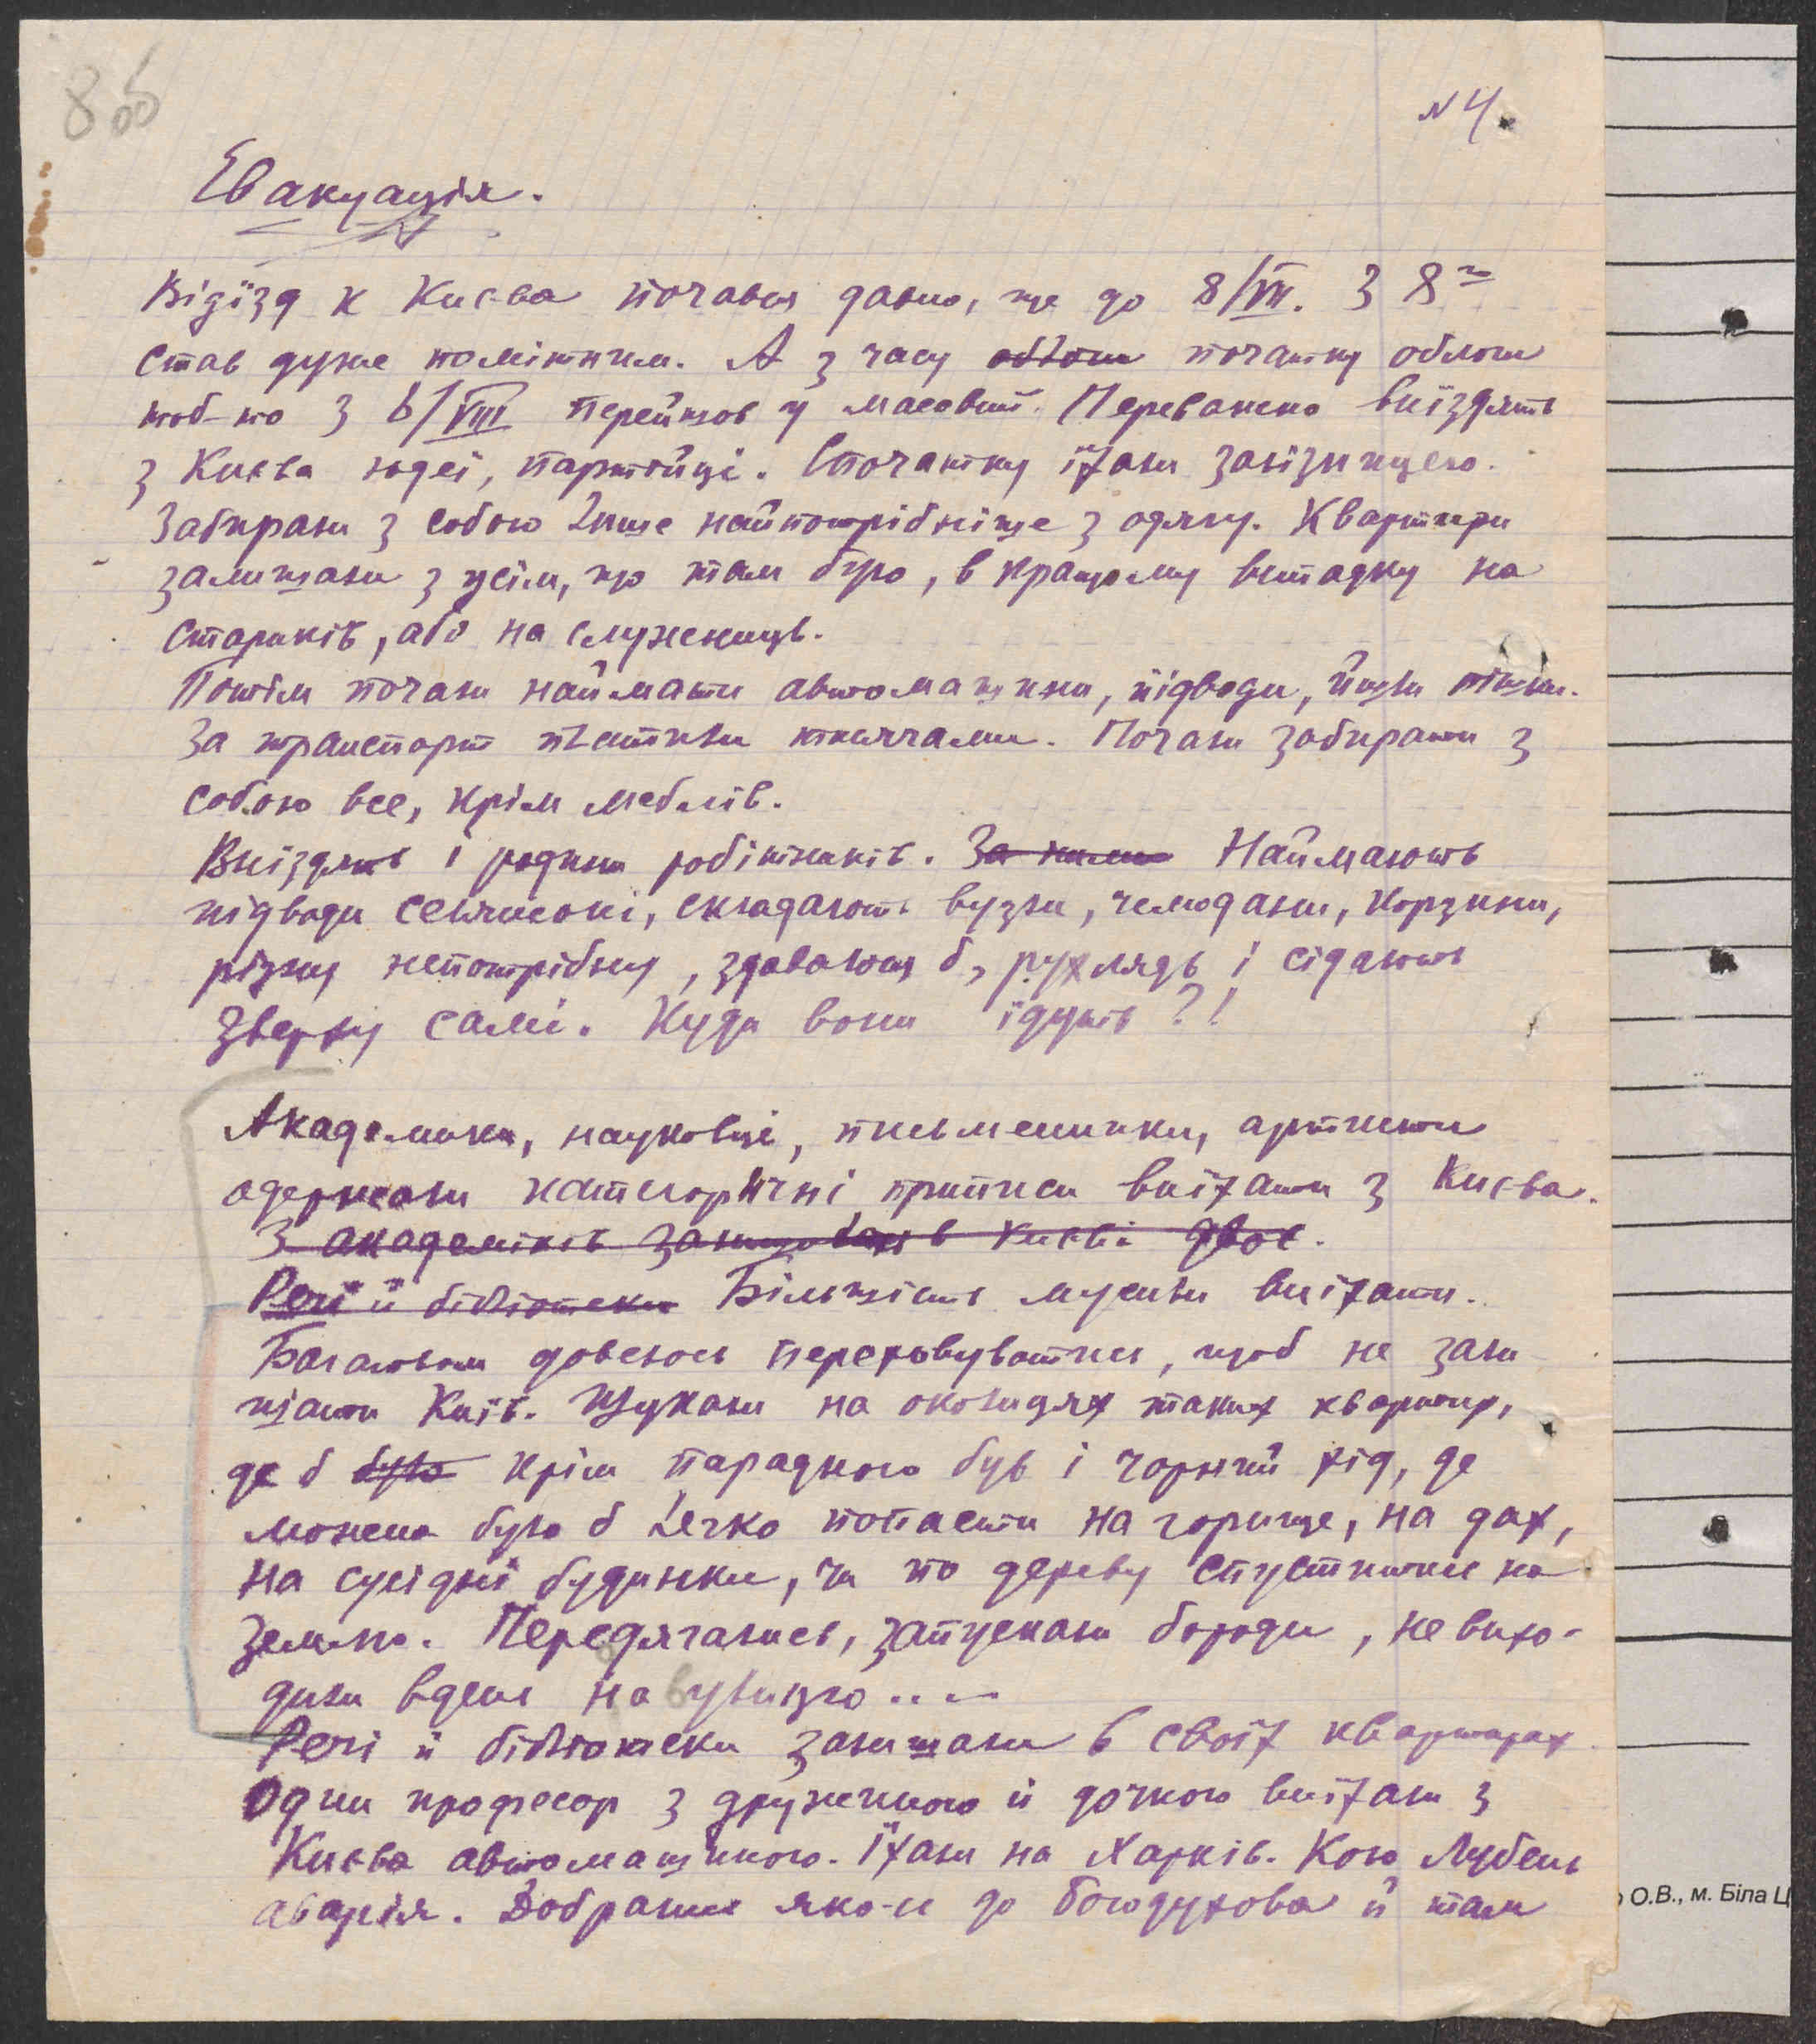 8об
№4.
Евакуація.
Відїзд к Києва почався давно, ще до 8/VII. З 8го
став дуже помітним. А з часу облоги початку облоги
тоб-то з 6/VIII перейшов у масовий. Переважно виїздять
з Києва юдеї, партійці. Спочатку їхали залізницею.
Забирали з собою лише найпотрібніше з одягу. Квартири
залишали з усім, що там було, в кращому випадку на
стариків, або на служениць.
Потім почали наймати автомашини, підводи, йшли пішки.
За транспорт платили тисячами. Почали забирати з
собою все, крім меблів.
Виїздять і родини робітників. За ними Наймають
підводи селянські, складають вузли, чемодани, корзини,
різну непотрібну, здавалося б, рухлядь і сідають
зверху самі. Куди вони їдуть?!
Академики, науковці, письменники, артисти
одержали категоричні приписи виїхати з Києва.
З академіків залишилось в Києві двоє.
Речі й бібліотеки Більшість мусили виїхати.
Багатьом довелось переховуватись, щоб не зали
шати Київ. Шукали на околицях таких квартир,
де б було крім парадного був і чорний хід, де
можна було б легко попасти на горище, на дах,
на сусідні будинки, чи по дереву спуститись на
землю. Передягались, запускали бороди, не вихо-
дили вдень на вулицю....
Речі й бібліотеки залишали в своїх квартирах
Один професор з дружиною й дочкою виїхали з
Києва автомашиною. Їхали на Харків. Коло Лубень
аварія. Добрались яко-сь до Богодухова й там
О.В., м. Біла Ц